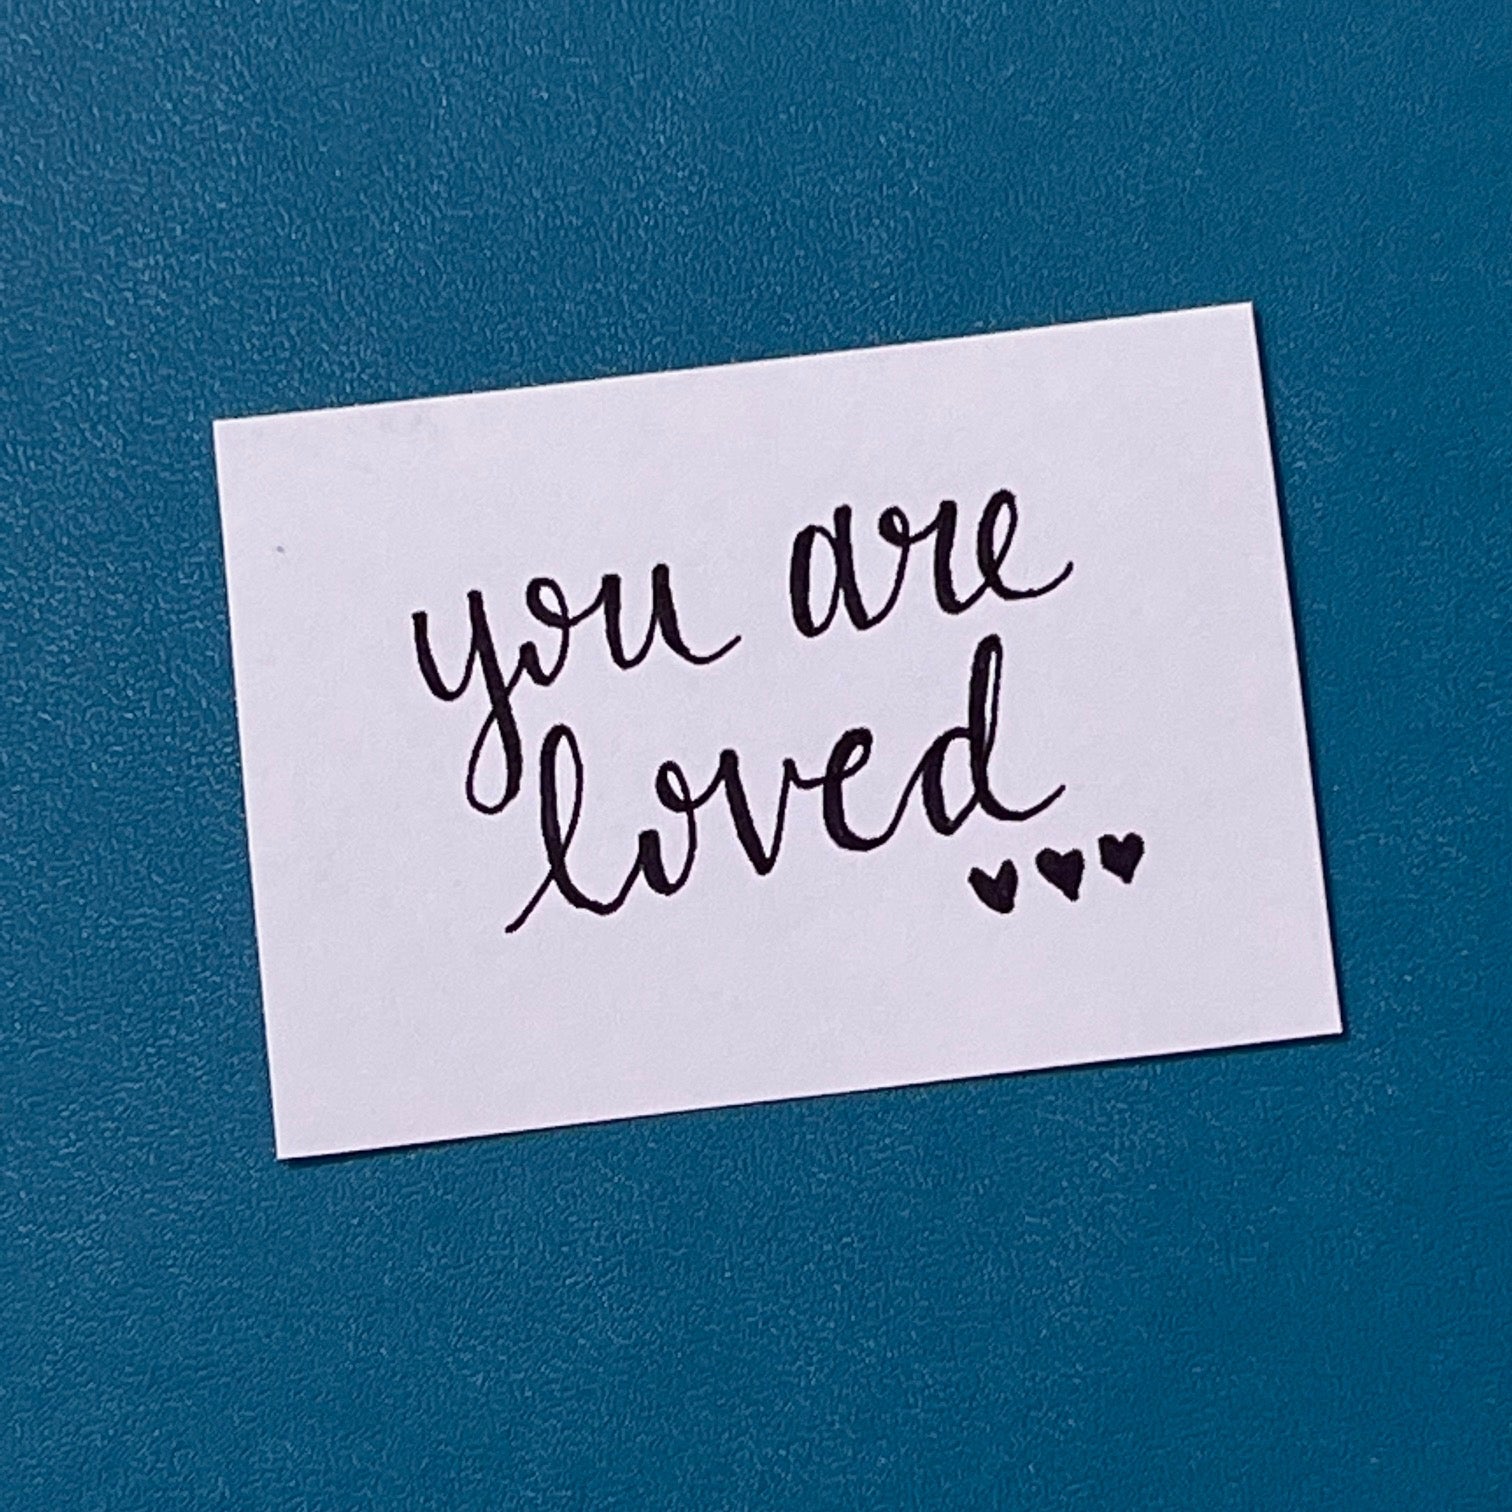 you are
loved
♥♥♥